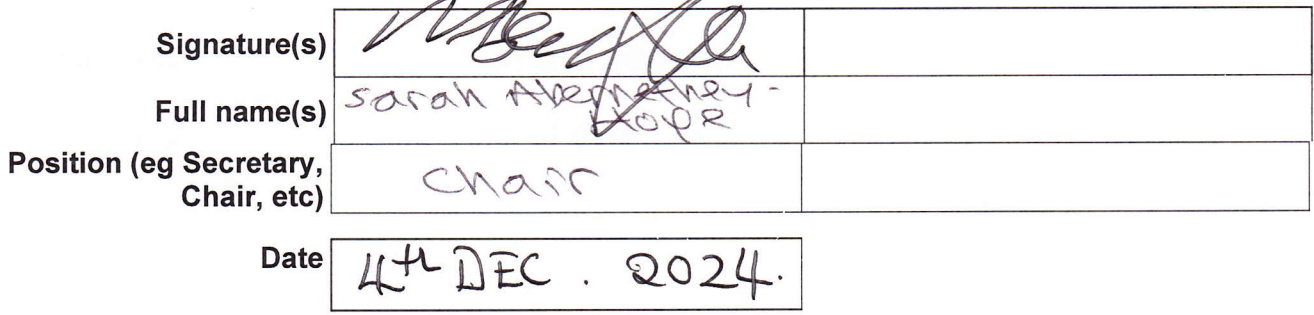 Signature(s)
Full name(s) Sarah Abernethey-
Hope
Position (eg Secretary,
Chair, etc) Chair
Date 4th DEC. 2024.